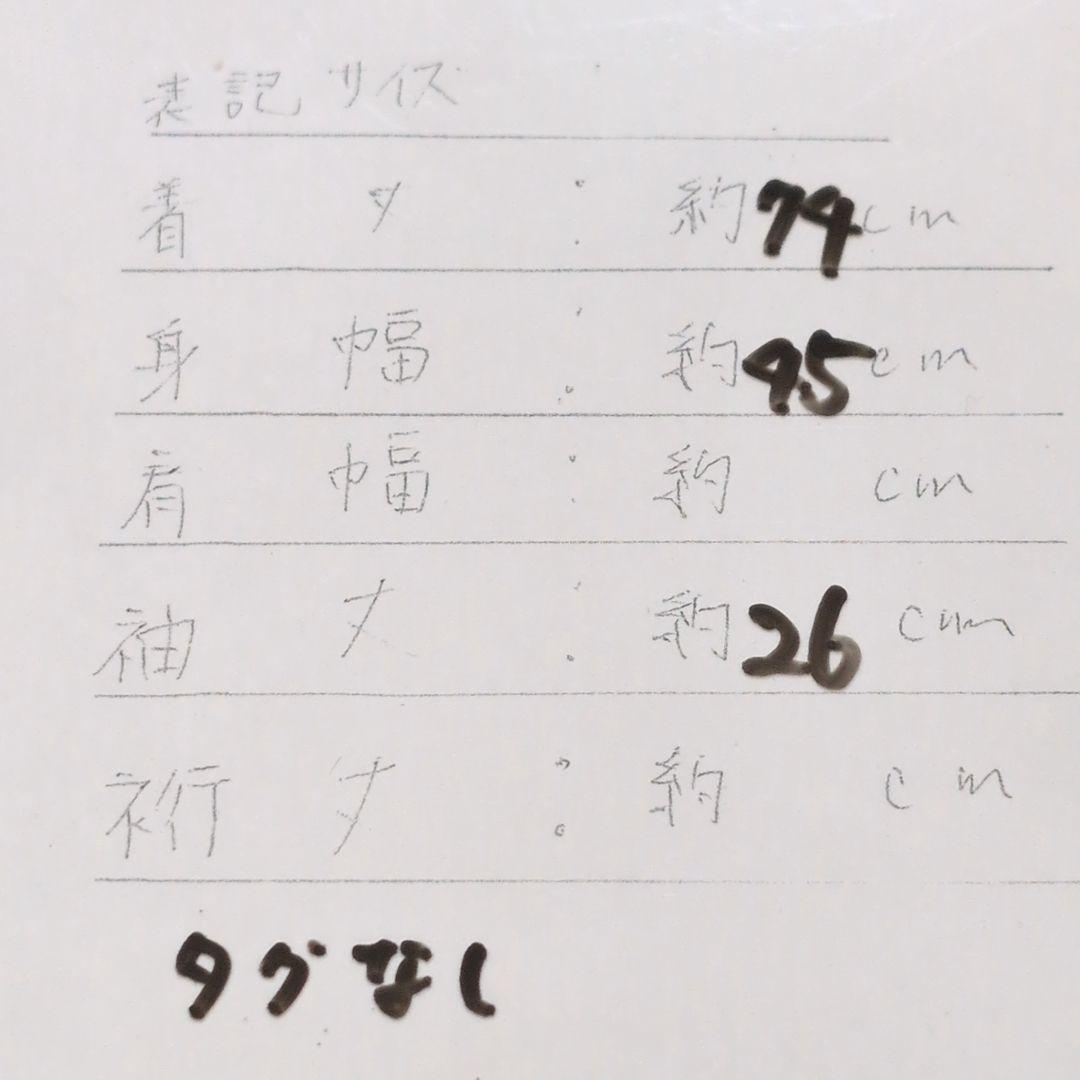 表記サイズ
着丈：約74cm
身幅：約45cm
肩幅：約 cm
袖丈：約26cm
裄丈：約 cm
タグなし